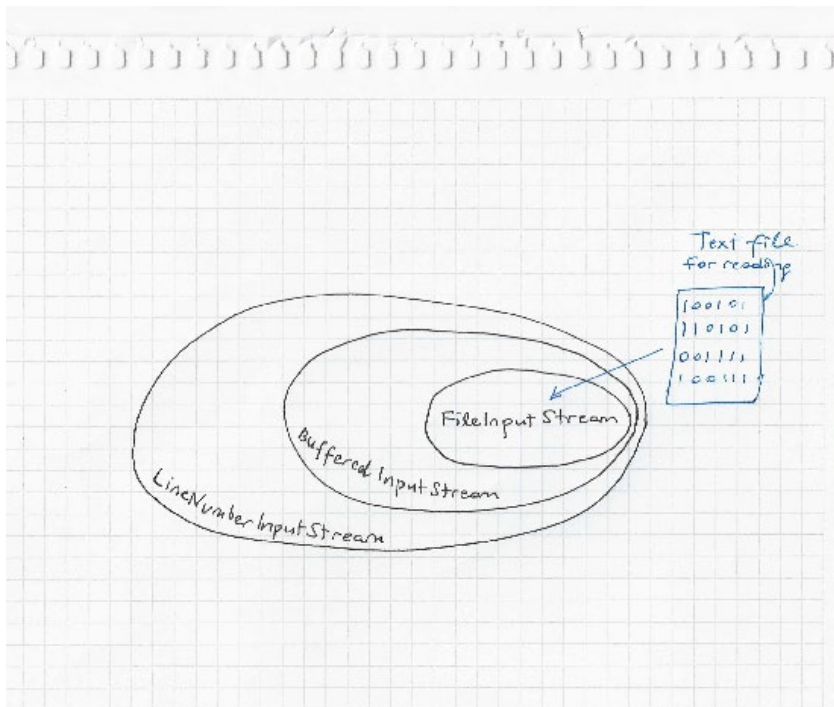 Text file
for reading
100101
110101
001111
100111
FileInputStream
BufferedInputStream
LineNumberInputStream